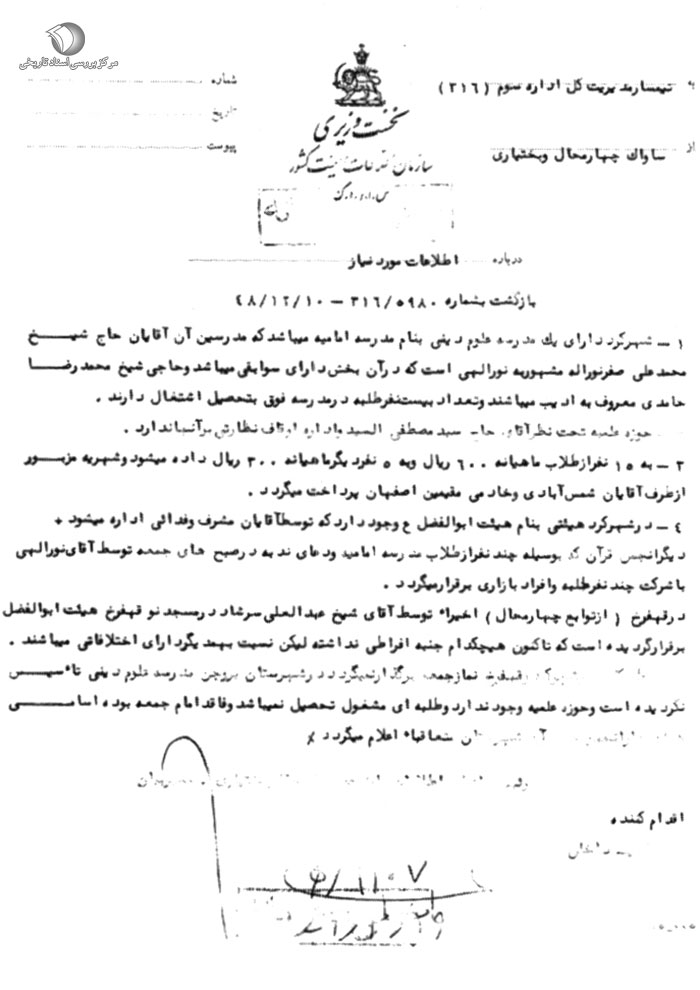 مرکز بررسی اسناد تاریخی
به تیمسار مدیریت کل اداره سوم (۳۱۶)
از ساواک چهارمحال وبختیاری
شماره
تاریخ
پیوست
نخست وزیری
سازمان اطلاعات و امنیت کشور
س.ا.و.ا.ک
درباره اطلاعات مورد نیاز
بازگشت بشماره ۳۱۶/۵۹۸۰ – ۴۸/۱۲/۱۰
۱ – شهرکرد دارای یک مدرسه علوم دینی بنام مدرسه امامیه میباشد که مدرسین آن آقایان حاج شیخ
محمدعلی صفرنوراله مشهوربه نورالهی است که درآن بخش دارای سوابقی میباشد وحاجی شیخ محمدرضا
حامدی معروف به ادیب میباشند وتعداد بیست نفرطلبه درمدرسه فوق بتحصیل اشتغال دارند .
حوزه علمیه تحت نظرآقای حاج سید مصطفی السید واداره اوقاف نظارتی برآنجاندارد .
۳ – به ۱۵ نفرازطلاب ماهیانه ۶۰۰ ریال وبه ۵ نفردیگرماهیانه ۳۰۰ ریال داده میشود وشهریه مزبور
ازطرف آقایان شمس آبادی وخادمی مقیمین اصفهان پرداخت میگردد .
۴ – درشهرکرد هیئتی بنام هیئت ابوالفضل ع وجود دارد که توسط آقایان مشرف وفدائی اداره میشود +
دیگرانجمن قرآن که بوسیله چند نفرازطلاب مدرسه امامیه ودعای ندبه درصبح های جمعه توسط آقای نورالهی
باشرکت چند نفرطلبه وافراد بازاری برقرارمیگردد .
درقهفرخ (ازتوابع چهارمحال) اخیراً توسط آقای شیخ عبدالعلی سرشاد درمسجد نو قهفرخ هیئت ابوالفضل
برقرارگردیده است که تاکنون هیچکدام جنبه افراطی نداشته لیکن نسبت بهمدیگردارای اختلافاتی میباشند .
وقهفرخ نمازجمعه برگذارنمیگردد درشهرستان بروجن مدرسه علوم دینی تاسیس
نگردیده است وحوزه علمیه وجودندارد وطلبه ای مشغول تحصیل نمیباشد وفاقد امام جمعه بوده اسامی
متعاقباً اعلام میگردد
اقدام کننده